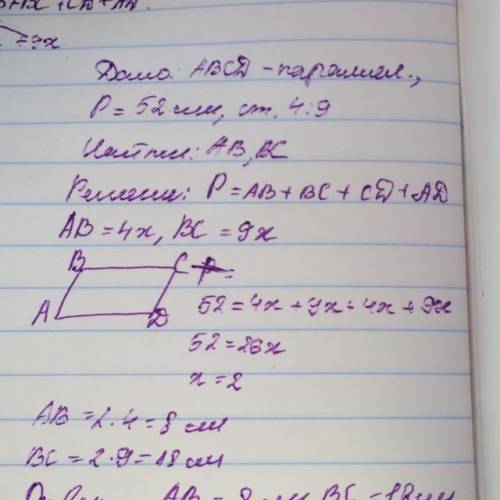 +BC + CD + AD.
9x
Дано: ABCD - паралел.,
P = 52 см, ст. 4:9
Найти: AB, BC
Решение: P = AB + BC + CD + AD
AB = 4x, BC = 9x
B C P =
A D 52 = 4x + 9x + 4x + 9x
52 = 26x
x = 2
AB = 2·4 = 8 см
BC = 2·9 = 18 см
AB = 8 см BC = 18 см